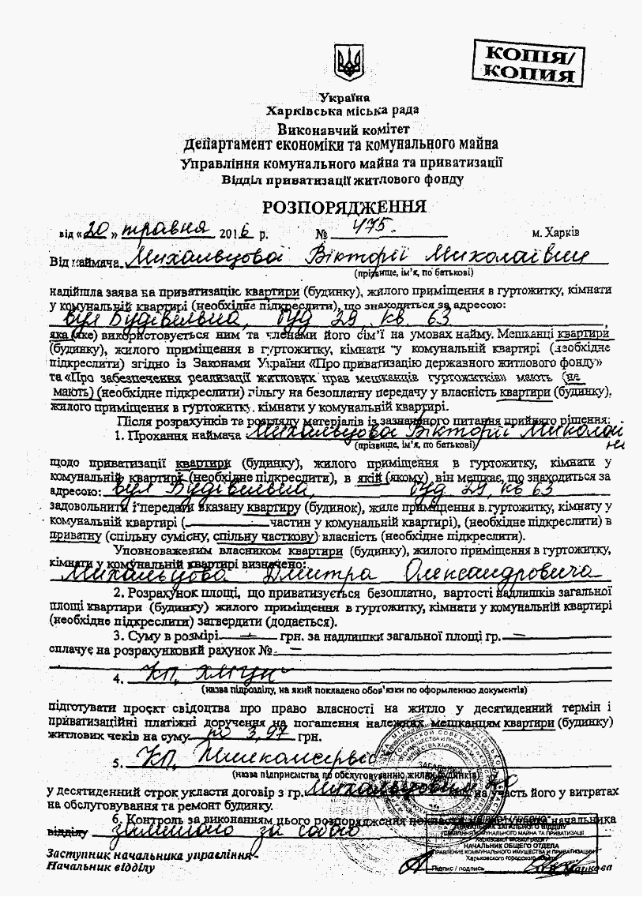 КОПІЯ/
КОПИЯ
Україна
Харківська міська рада
Виконавчий комітет
Департамент економіки та комунального майна
Управління комунального майна та приватизації
Відділ приватизації житлового фонду
РОЗПОРЯДЖЕННЯ
від «20» травня 2016 р. № 475. м. Харків
Від наймача Михальцової Вікторії Миколаївни
(прізвище, ім’я, по батькові)
надійшла заява на приватизацію квартири (будинку), жилого приміщення в гуртожитку, кімнати
у комунальній квартирі (необхідне підкреслити), що знаходиться за адресою:
вул Будівельна, буд 29, кв. 63
яка (яке) використовується ним та членами його сім’ї на умовах найму. Мешканці квартири
(будинку), жилого приміщення в гуртожитку, кімнати у комунальній квартирі (необхідне
підкреслити) згідно із Законами України «Про приватизацію державного житлового фонду»
та «Про забезпечення реалізації житлових прав мешканців гуртожитків» мають (не
мають) (необхідне підкреслити) пільгу на безоплатну передачу у власність квартири (будинку),
жилого приміщення в гуртожитку, кімнати у комунальній квартирі.
Після розрахунків та розгляду матеріалів із зазначеного питання прийнято рішення:
1. Прохання наймача Михальцової Вікторії Миколаївни
(прізвище, ім’я, по батькові)
щодо приватизації квартири (будинку), жилого приміщення в гуртожитку, кімнати у
комунальній квартирі (необхідне підкреслити), в якій (якому) він мешкає, що знаходиться за
адресою: вул Будівельна, буд 29, кв 63
задовольнити і передати вказану квартиру (будинок), жиле приміщення в гуртожитку, кімнату у
комунальній квартирі (________ частин у комунальній квартирі), (необхідне підкреслити) в
приватну (спільну сумісну, спільну часткову) власність (необхідне підкреслити).
Уповноваженим власником квартири (будинку), жилого приміщення в гуртожитку,
кімнати у комунальній квартирі визначено:
Михальцова Дмитра Олександровича
2. Розрахунок площі, що приватизується безоплатно, вартості надлишків загальної
площі квартири (будинку) жилого приміщення в гуртожитку, кімнати у комунальній квартирі
(необхідне підкреслити) затвердити (додається).
3. Суму в розмірі — грн. за надлишки загальної площі гр. —
сплачує на розрахунковий рахунок № —
4. КП
(назва підрозділу, на який покладено обов’язки по оформленню документів)
підготувати проєкт свідоцтва про право власності на житло у десятиденний термін і
приватизаційні платіжні доручення на погашення належних мешканцям квартири (будинку)
житлових чеків на суму по 3,97 грн.
5. КП Жилкомсервіс
(назва підприємства по обслуговуванню жилих будинків)
у десятиденний строк укласти договір з гр. на участь його у витратах
на обслуговування та ремонт будинку.
6. Контроль за виконанням цього розпорядження покласти на начальника
відділу залишаю за собою
Заступник начальника управління-
Начальник відділу
НАЧАЛЬНИК ЗАГАЛЬНОГО ВІДДІЛУ
НАЧАЛЬНИК ОБЩЕГО ОТДЕЛА
Підпис / подпись